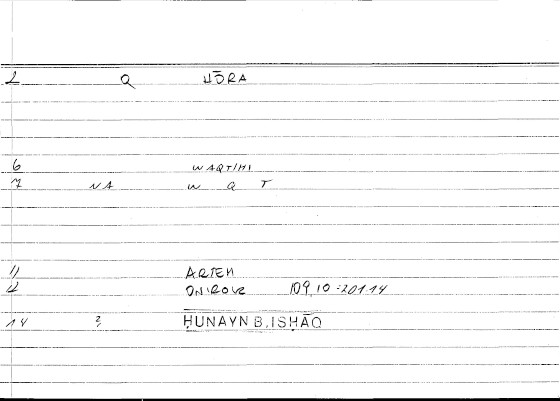 2 Q HŌRA
6 WAQTIHI
7 NA W Q T
11 ARTEM
12 ONIROKR 109,10 = 201,14
14 2, ḤUNAYN B. ISḤĀQ